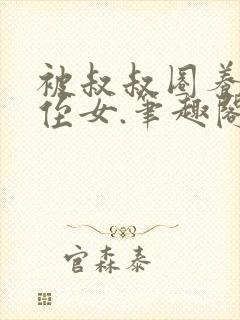 被叔叔圈养
侄女.笔趣阁
官森泰